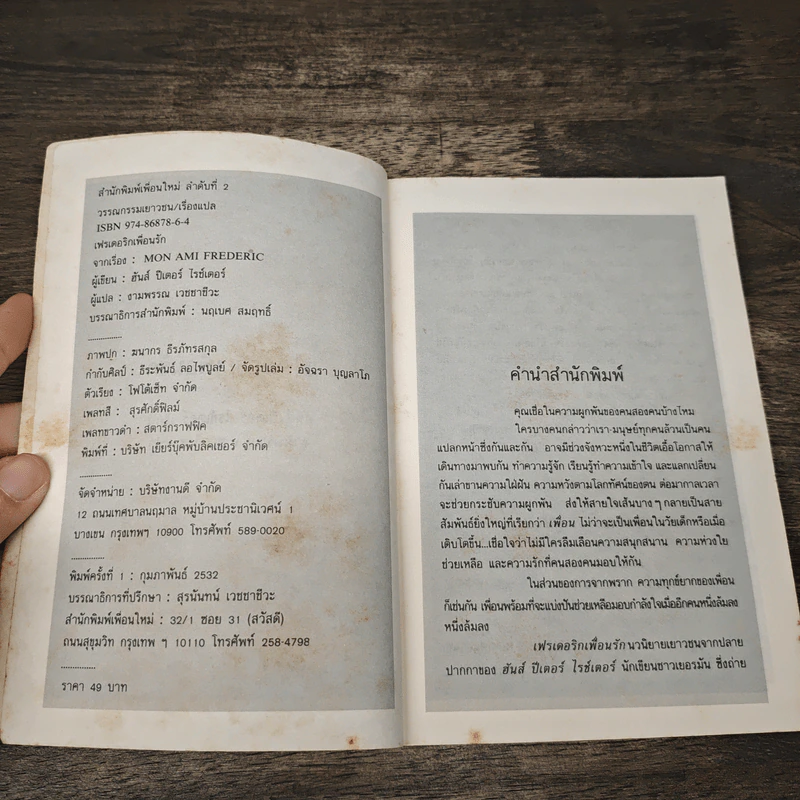 สำนักพิมพ์เพื่อนใหม่ ลำดับที่ 2
วรรณกรรมเยาวชน/เรื่องแปล
ISBN 974-86878-6-4
เฟรเดอริกเพื่อนรัก
จากเรื่อง : MON AMI FREDERIC
ผู้เขียน : ฮันส์ ปีเตอร์ ไรช์เตอร์
ผู้แปล : งามพรรณ เวชชาชีวะ
บรรณาธิการสำนักพิมพ์ : นฤเบศ สมฤทธิ์
...............
ภาพปก : ฆนากร ธีรภัทรสกุล
กำกับศิลป์ : ธีระพันธ์ ลอไพบูลย์ / จัดรูปเล่ม : อัจฉรา บุญลาโภ
ตัวเรียง : โฟโต้เซ็ท จำกัด
เพลทสี : สุรศักดิ์ฟิลม์
เพลทขาวดำ : สตาร์กราฟฟิค
พิมพ์ที่ : บริษัท เยียร์บุ๊คพับลิคเชอร์ จำกัด
...............
จัดจำหน่าย : บริษัทงานดี จำกัด
12 ถนนเทศบาลนฤมาล หมู่บ้านประชานิเวศน์ 1
บางเขน กรุงเทพฯ 10900 โทรศัพท์ 589-0020
...............
พิมพ์ครั้งที่ 1 : กุมภาพันธ์ 2532
บรรณาธิการที่ปรึกษา : สุรนันทน์ เวชชาชีวะ
สำนักพิมพ์เพื่อนใหม่ : 32/1 ซอย 31 (สวัสดี)
ถนนสุขุมวิท กรุงเทพ ฯ 10110 โทรศัพท์ 258-4798
...............
ราคา 49 บาท
คำนำสำนักพิมพ์
คุณเชื่อในความผูกพันของคนสองคนบ้างไหม
ใครบางคนกล่าวว่าเรา-มนุษย์ทุกคนล้วนเป็นคน
แปลกหน้าซึ่งกันและกัน อาจมีช่วงจังหวะหนึ่งในชีวิตเอื้อโอกาสให้
เดินทางมาพบกัน ทำความรู้จัก เรียนรู้ทำความเข้าใจ และแลกเปลี่ยน
กันเล่าขานความใฝ่ฝัน ความหวังตามโลกทัศน์ของตน ต่อมากาลเวลา
จะช่วยกระชับความผูกพัน ส่งให้สายใยเส้นบางๆ กลายเป็นสาย
สัมพันธ์ยิ่งใหญ่ที่เรียกว่า เพื่อน ไม่ว่าจะเป็นเพื่อนในวัยเด็กหรือเมื่อ
เติบโตขึ้น...เชื่อใจว่าไม่มีใครลืมเลือนความสนุกสนาน ความห่วงใย
ช่วยเหลือ และความรักที่คนสองคนมอบให้กัน
ในส่วนของการจากพราก ความทุกข์ยากของเพื่อน
ก็เช่นกัน เพื่อนพร้อมที่จะแบ่งปันช่วยเหลือมอบกำลังใจเมื่ออีกคนหนึ่งล้มลง
หนึ่งล้มลง
เฟรเดอริกเพื่อนรัก นวนิยายเยาวชนจากปลาย
ปากกาของ ฮันส์ ปีเตอร์ ไรช์เตอร์ นักเขียนชาวเยอรมัน ซึ่งถ่าย